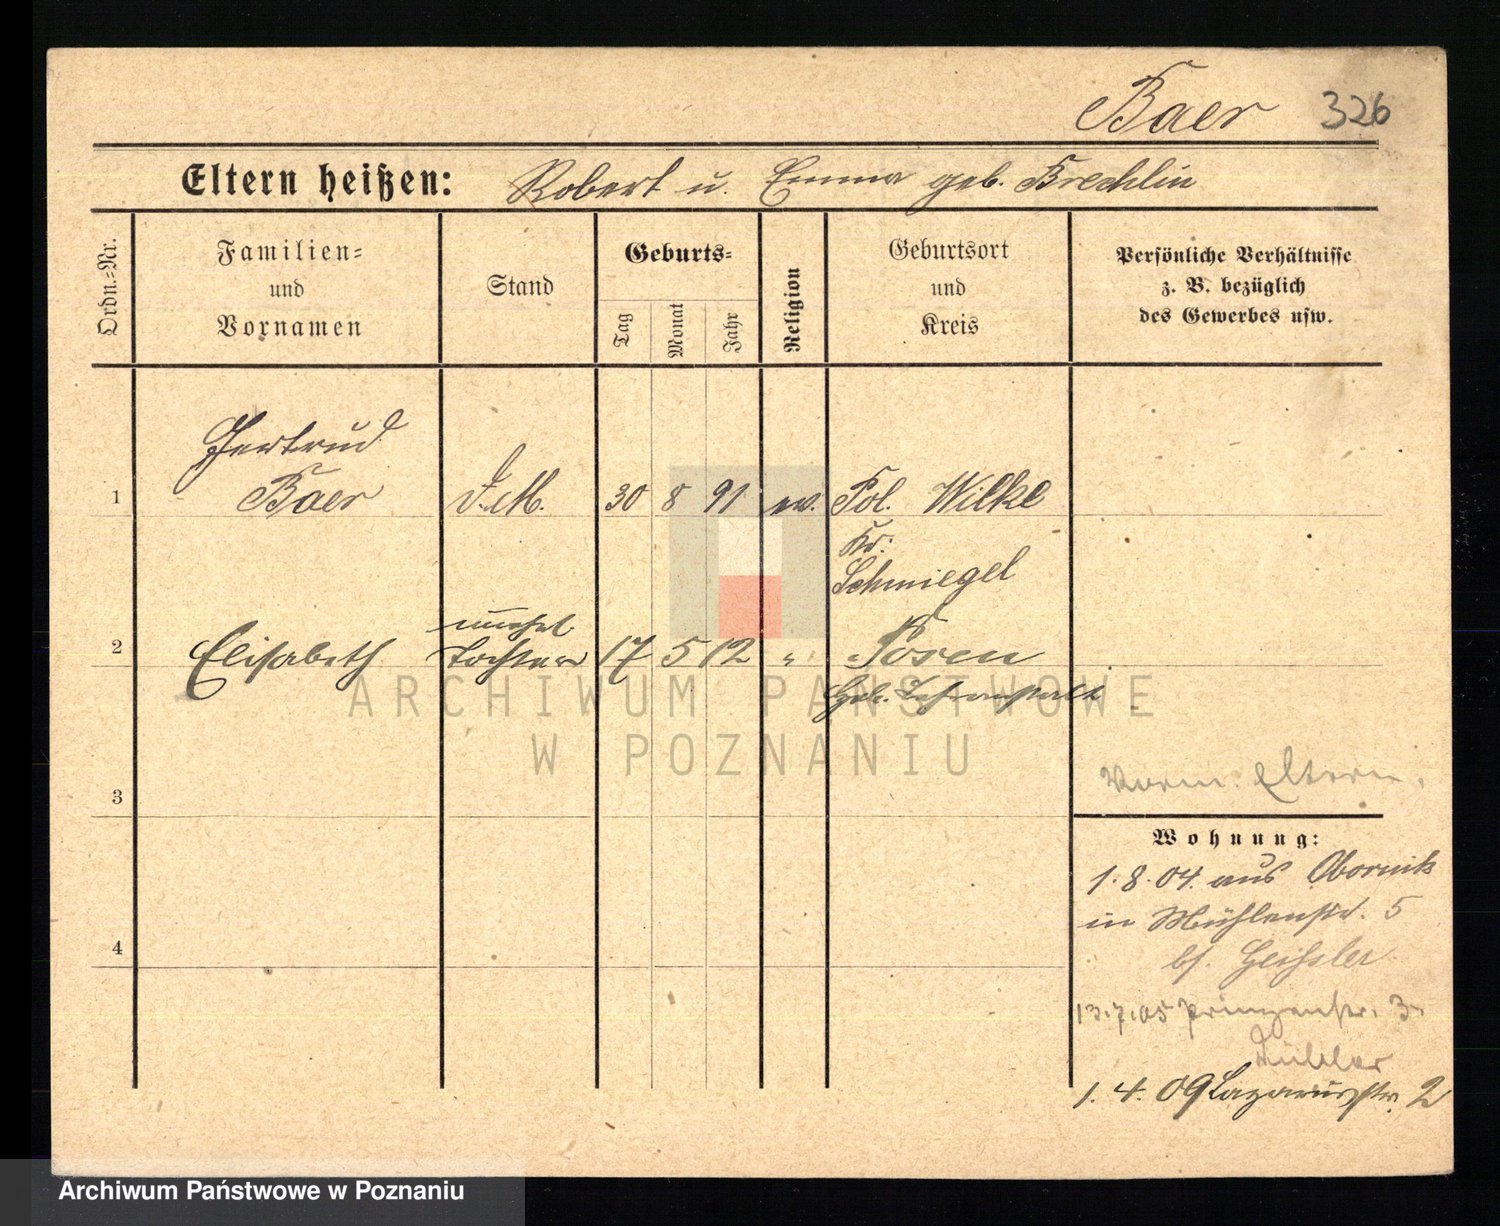 Baer 326
Eltern heißen: Robert u. Emma geb. Brechlin
Ordn.-Nr.
Familien-
und
Vornamen
Stand
Geburts-
Tag
Monat
Jahr
Religion
Geburtsort
und
Kreis
Persönliche Verhältnisse
z. B. bezüglich
des Gewerbes usw.
Gertrud
1 Baer D.M. 30 8 91 ev. Pol. Wilke
Kr.
Schmiegel
unehel.
2 Elisabeth Tochter 17 5 12 " Posen
Heb. Lehranstalt
ARCHIWUM PAŃSTWOWE
W POZNANIU
3
Vorm. Eltern.
Wohnung:
1.8.04. aus Obornik
in Mühlenstr. 5
4
bf. Geissler
13.7.05 Prinzenstr. 3.
1.4.09 Lazarusstr. 2
Archiwum Państwowe w Poznaniu